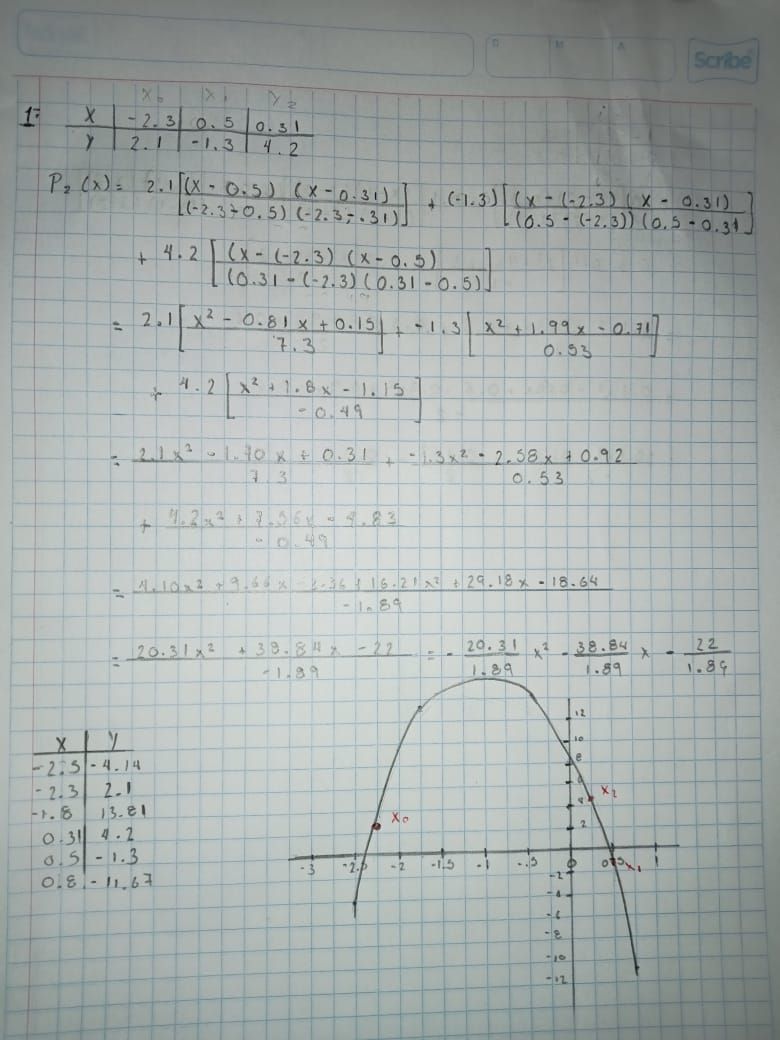 D M A
Scribe
X₀ X₁ Y₂
1- X -2.3 0.5 0.31
Y 2.1 -1.3 4.2
P₂(x) = 2.1[(x - 0.5) (x - 0.31) / (-2.3 - 0.5) (-2.3 - .31)] + (-1.3)[(x - (-2.3) (x - 0.31) / (0.5 - (-2.3)) (0.5 - 0.31]
+ 4.2 [(x - (-2.3) (x - 0.5) / (0.31 - (-2.3) (0.31 - 0.5)]
= 2.1[x² - 0.81x + 0.15 / 7.3] + -1.3[x² + 1.99x - 0.71 / 0.53]
+ 4.2 [x² + 1.8x - 1.15 / -0.49]
= 2.1x² - 1.70x + 0.31 / 7.3 + -1.3x² - 2.58x + 0.92 / 0.53
+ 4.2x² + 7.56x - 4.83 / -0.49
= 4.10x² + 9.66x - 3.36 + 16.21x² + 29.18x - 18.64 / -1.89
= 20.31x² + 38.84x - 22 / -1.89 = - 20.31 / 1.89 x² - 38.84 / 1.89 x - 22 / 1.89
X Y
-2.5 -4.14
-2.3 2.1
-1.8 13.81
0.31 4.2
0.5 -1.3
0.8 -11.67
12
10
8
6
4
2
X₀
X₂
-3 -2.5 -2 -1.5 -1 -.5 0 0.5 1
X₁
-2
-4
-6
-8
-10
-12